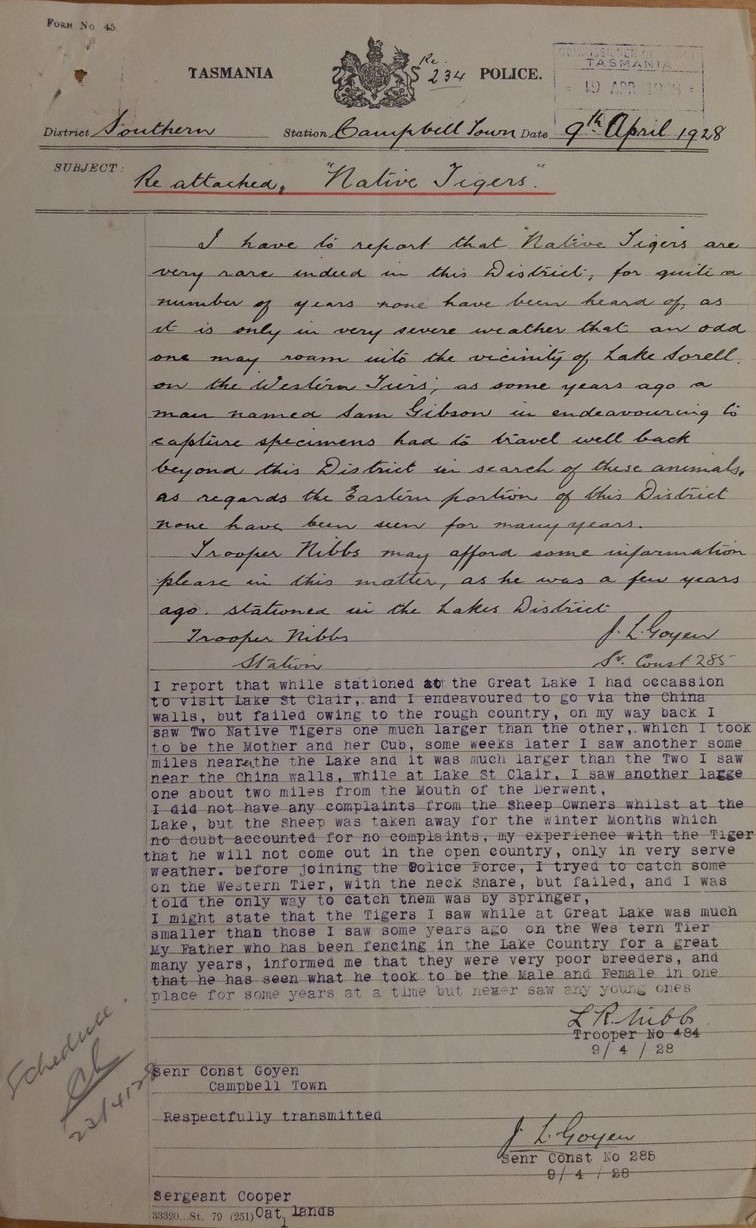 FORM No. 45.
TASMANIA
Re.
234
POLICE.
COMMISSIONER OF
TASMANIA
19 APR 1928
District Southern Station Campbell Town Date 9th April 1928
SUBJECT: Re attached, "Native Tigers."
I have to report that "Native Tigers are
very rare indeed in this District, for quite a
number of years none have been heard of, as
it is only in very severe weather that an odd
one may roam into the vicinity of Lake Sorell.
on the Western Tiers; as some years ago a
man named Sam Gibson in endeavouring to
capture specimens had to travel well back
beyond this District in search of these animals,
as regards the Eastern portion of this District
none have been seen for many years.
Trooper Nibbs may afford some information
please in this matter, as he was a few years
ago. stationed in the Lakes District
Trooper Nibbs J. L. Goyen
Station Sr. Const 285
I report that while stationed at the Great Lake I had occassion
to visit Lake St Clair, and I endeavoured to go via the China
walls, but failed owing to the rough country, on my way back I
saw Two Native Tigers one much larger than the other, which I took
to be the Mother and her Cub, some weeks later I saw another some
miles near the the Lake and it was much larger than the Two I saw
near the China walls, while at Lake St Clair, I saw another lagge
one about two miles from the Mouth of the Derwent,
I did not have any complaints from the Sheep Owners whilst at the
Lake, but the Sheep was taken away for the Winter Months which
no doubt accounted for no complaints, my experience with the Tiger
that he will not come out in the open country, only in very serve
weather. before joining the Police Force, I tryed to catch some
on the Western Tier, with the neck Snare, but failed, and I was
told the only way to catch them was by springer,
I might state that the Tigers I saw while at Great Lake was much
smaller than those I saw some years ago on the Wes tern Tier
My Father who has been fencing in the Lake Country for a great
many years, informed me that they were very poor breeders, and
that he has seen what he took to be the Male and Female in one
place for some years at a time but never saw any young ones
L R Nibbs
Trooper No 484
9/ 4 / 28
Schedule.
23/4/28
Senr Const Goyen
Campbell Town
Respectfully transmitted
J. L. Goyen
Senr Const No 285
9/ 4 / 28
Sergeant Cooper
33320...St. 79 (251) Oat lands